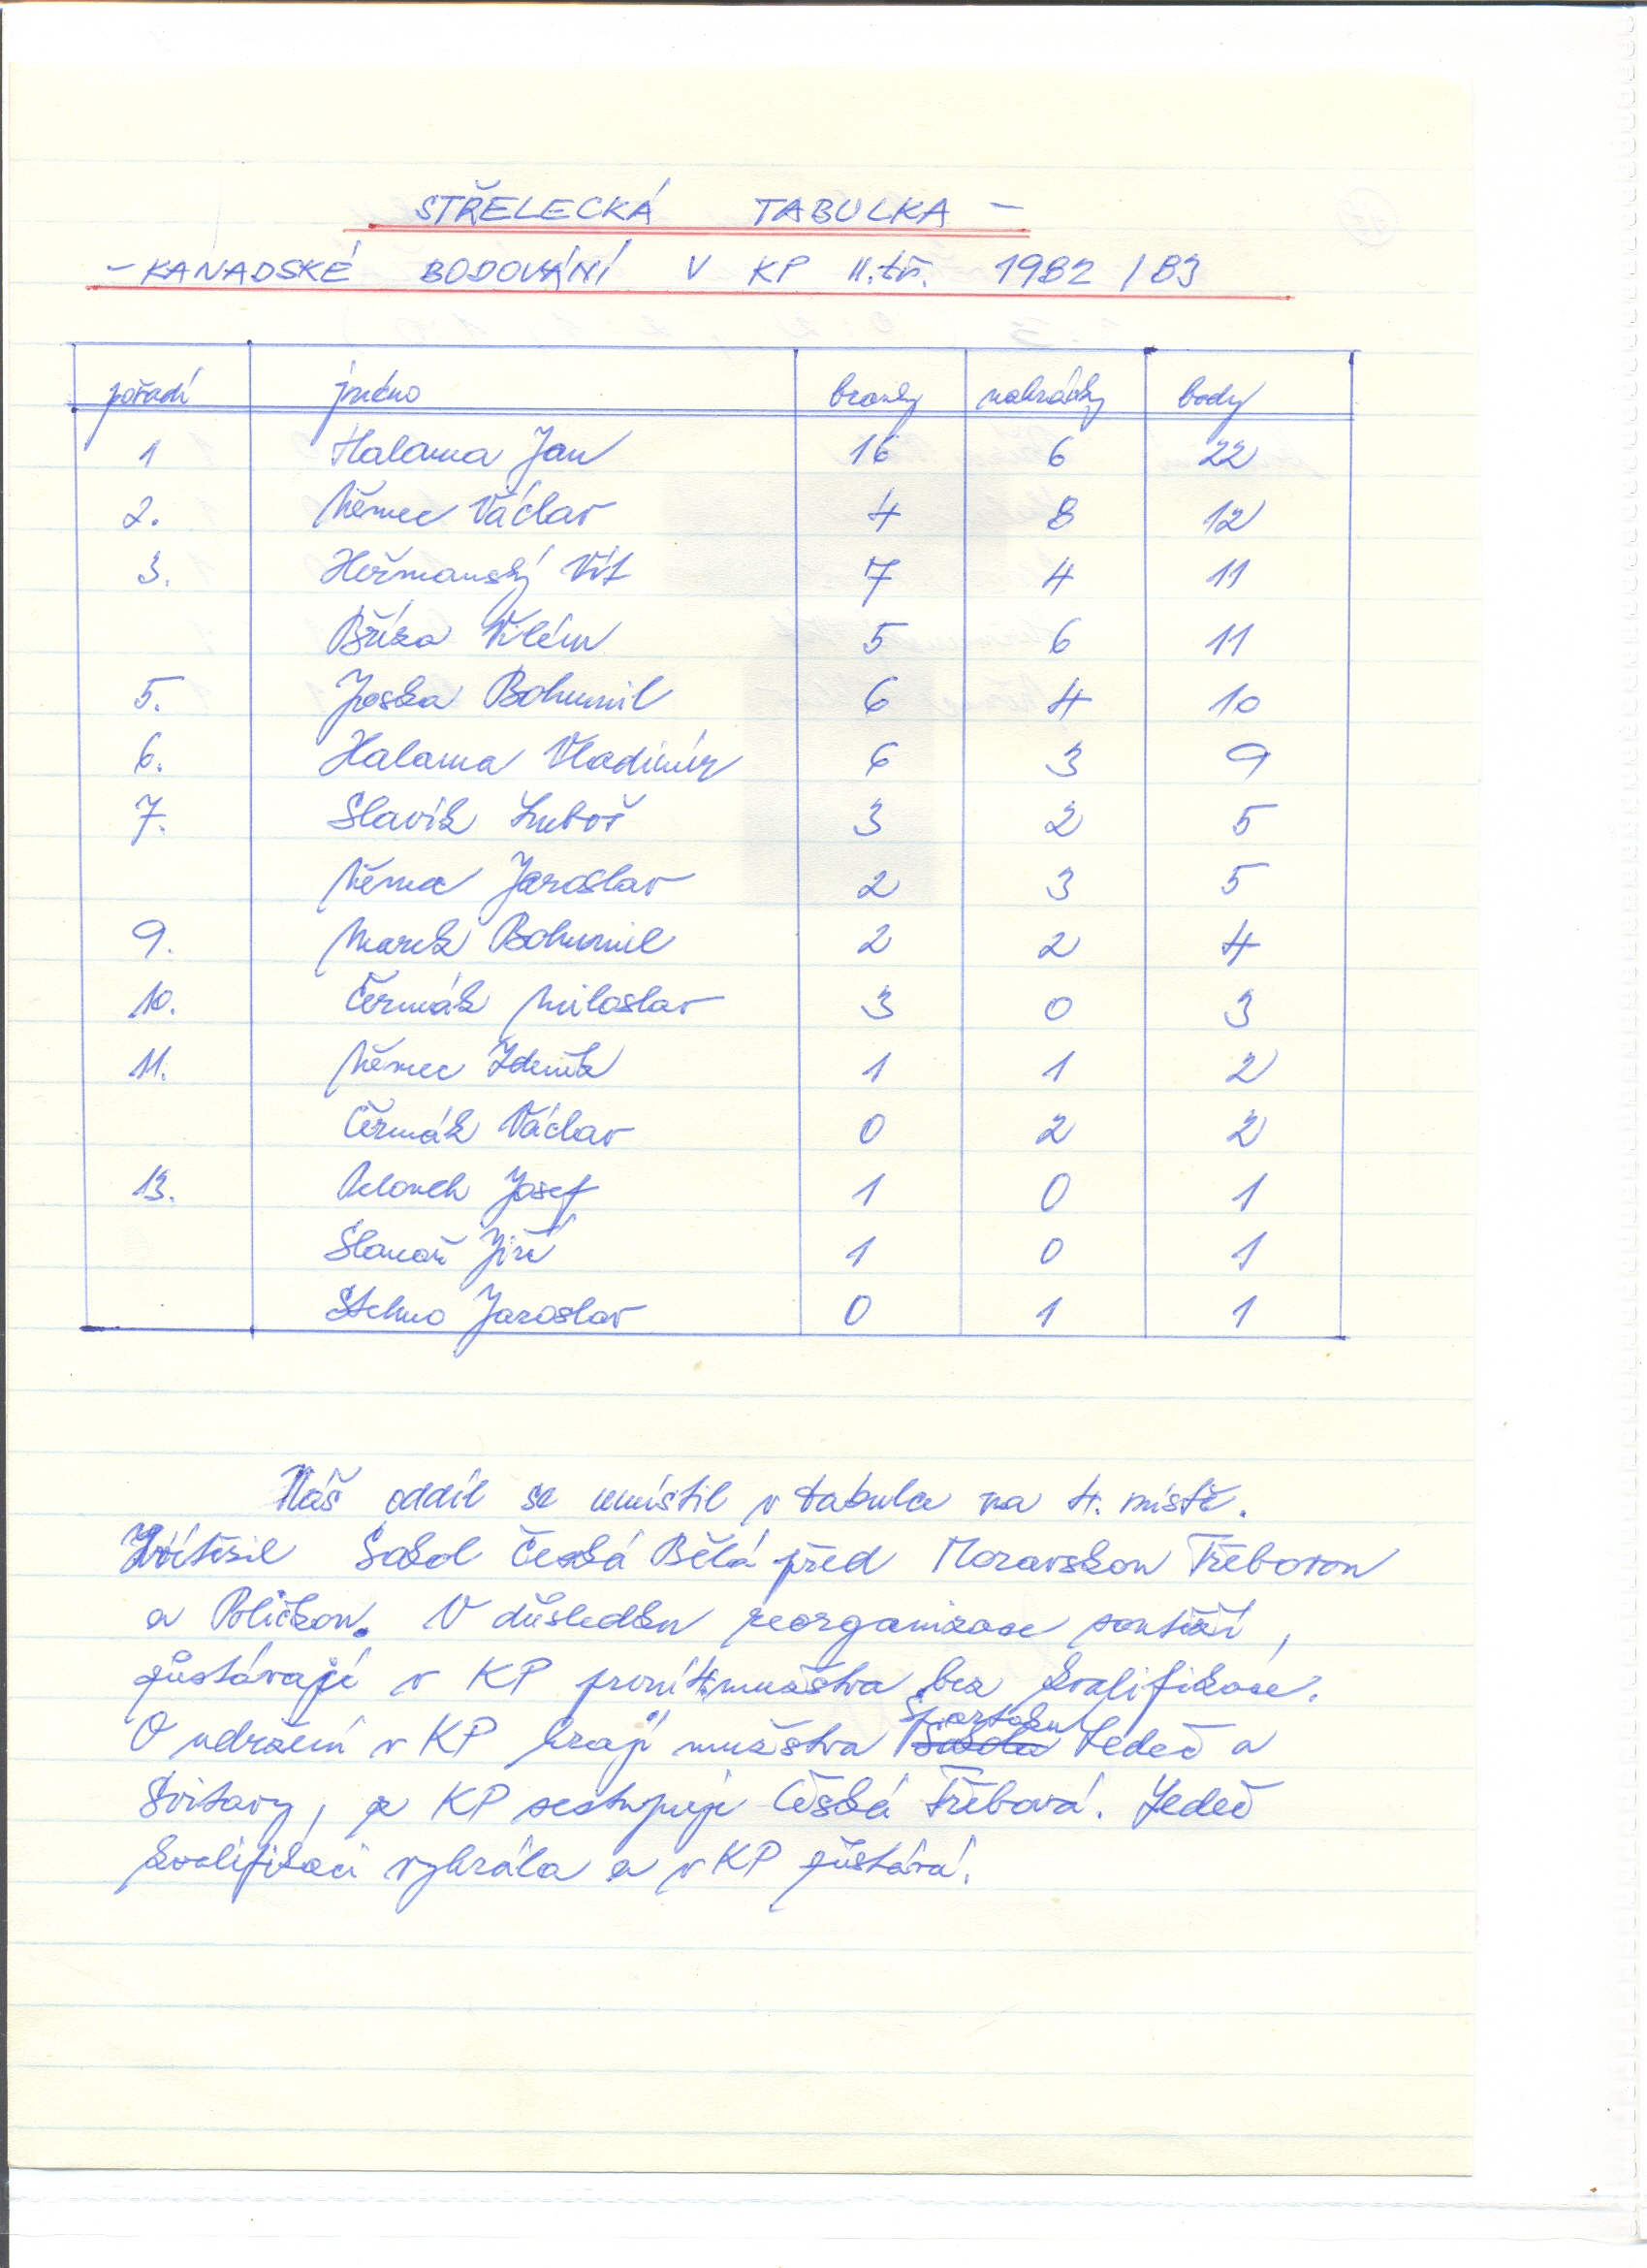 STŘELECKÁ TABULKA –
– KANADSKÉ BODOVÁNÍ V KP II. tř. 1982/83
pořadí jméno branky nahrávky body
1 Halama Jan 16 6 22
2. Němec Václav 4 8 12
3. Heřmanský Vít 7 4 11
Bříza Vilém 5 6 11
5. Joska Bohumil 6 4 10
6. Halama Vladimír 6 3 9
7. Slavík Luboš 3 2 5
Němec Jaroslav 2 3 5
9. Marek Bohumil 2 2 4
10. Čermák Miloslav 3 0 3
11. Němec Zdeněk 1 1 2
Čermák Václav 0 2 2
13. Josef 1 0 1
Jiří 1 0 1
Stehno Jaroslav 0 1 1
Náš oddíl se umístil v tabulce na 4. místě.
Zvítězil Sokol Česká Bělá před Moravskou Třebovou
a Poličkou. V důsledku reorganizace soutěží,
zůstávají v KP první 4 mužstva bez kvalifikace.
O udržení v KP hrají mužstva Spartaku Ledeč a
Svitavy, z KP sestupuje Česká Třebová. Ledeč
kvalifikaci vyhrála a v KP zůstává.